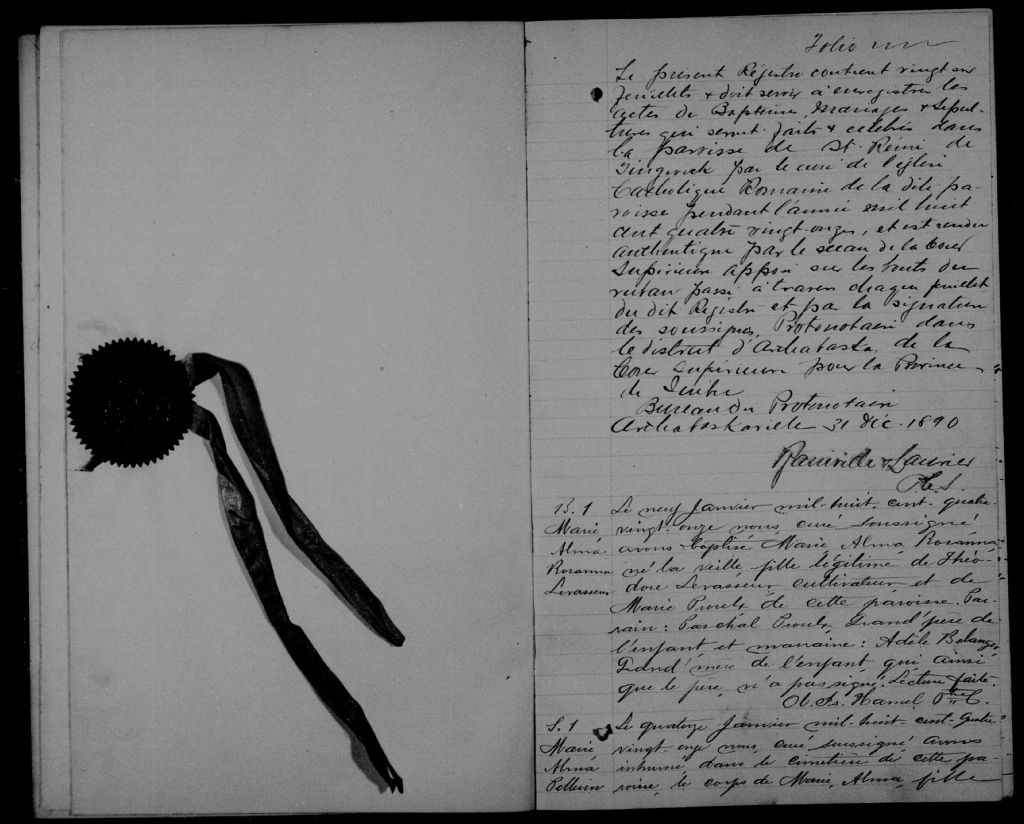 Folio
Le présent Régistre contient vingt six
feuillets & doit servir à enregistrer les
actes de Baptêmes, Mariages & Sepul-
tures qui seront faits & celebrés dans
la paroisse de St. Rémi de
Tingwick par le curé de l'église
Catholique Romaine de la dite pa-
roisse pendant l'année mil huit
cent quatre vingt-onze, et est rendu
authentique par le sceau de la Cour
Supérieure apposé sur les bouts du
ruban passé à travers chaque feuillet
du dit Régistre et par la signature
des soussignés, Protonotaire dans
le district d'Arthabaska, de la
Cour Supérieure pour la Province
de Québec
Bureau du Protonotaire
Arthabaskaville 31 Déc. 1890
Rainville & Laurier
P.C.S.
B. 1 Le neuf Janvier mil-huit-cent-quatre-
Marie vingt-onze nous curé soussigné
Alma avons baptisé Marie Alma Rosanna
Rosanna né la veille fille légitime de Théo-
Levasseur dore Levasseur cultivateur et de
Marie Proulx de cette paroisse. Par-
rain: Paschal Proulx Grand'père de
l'enfant et marraine: Adèle Belanger
Grand'mère de l'enfant qui ainsi
que le père n'a pas signé. Lecture faite.
Hamel Ptre C.
S. 1 Le quatorze Janvier mil-huit-cent-quatre-
Marie vingt-onze nous, curé soussigné avons
Alma inhumé, dans le cimetière de cette pa-
roisse, le corps de Marie, Alma, fille